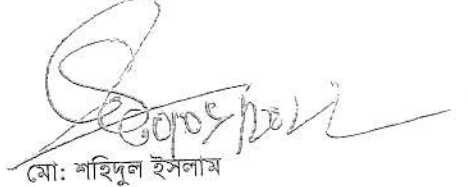 মো: শহিদুল ইসলাম